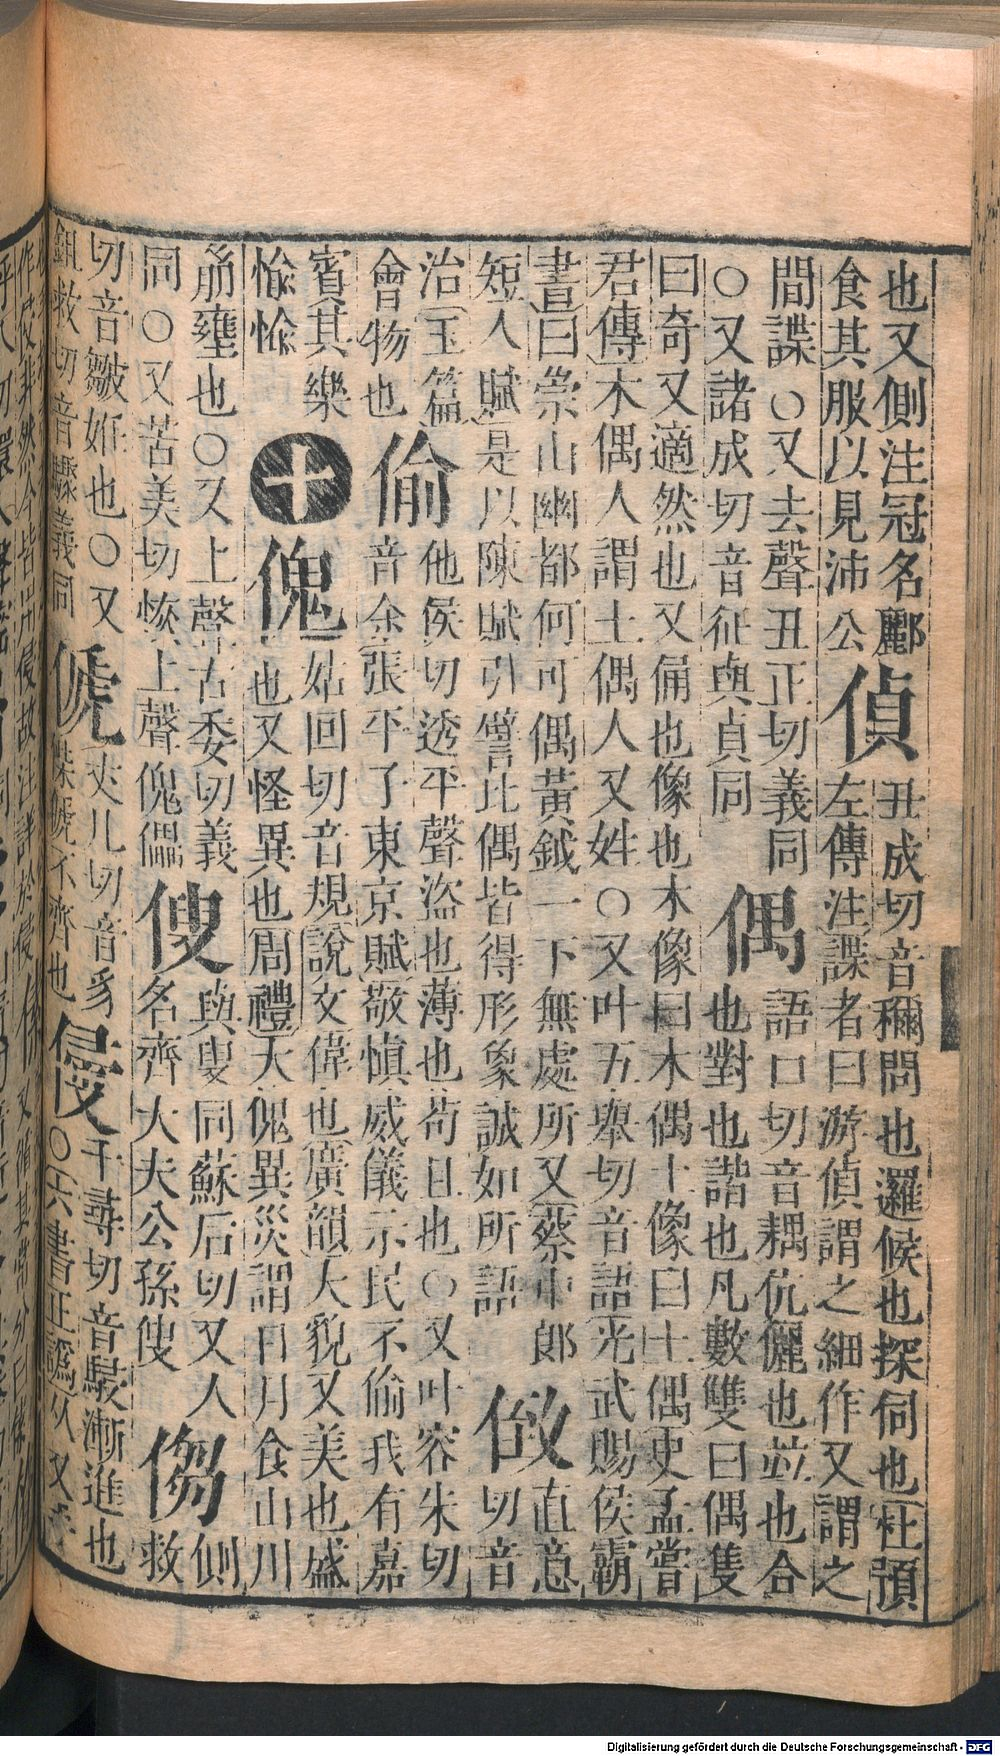 也又側注冠名酈
食其服以見沛公
偵
丑成切音稱問也邏候也探伺也杜預
左傳注諜者曰游偵謂之細作又謂之
間諜○又去聲丑正切義同
○又諸成切音征與貞同
偶
語口切音耦伉儷也並也合
也對也諧也凡數雙曰偶隻
曰奇又適然也又俑也像也木像曰木偶土像曰土偶史孟嘗
君傳木偶人謂土偶人又姓○又叶五舉切音語光武賜侯霸
書曰崇山幽都何可偶黃鉞一下無處所又蔡中郎
短人賦是以陳賦引譬比偶皆得形象誠如所語
直意
切音
治玉篇
會物也
偷
他侯切透平聲盜也薄也苟且也○又叶容朱切
音余張平子東京賦敬慎威儀示民不偷我有嘉
賓其樂
愉愉
十
傀
姑回切音規說文偉也廣韻大貌又美也盛
也又怪異也周禮大傀異災謂日月食山川
崩壅也○又上聲古委切義
同○又苦美切恢上聲傀儡
傁
與叟同蘇后切又人
名齊大夫公孫傁
㑳
側
救
切音皺 也○又
鉏救切音驟義同
傂
丈几切音豸
傂不齊也
侵
千尋切音駸漸進也
○六書正譌从又
Digitalisierung gefördert durch die Deutsche Forschungsgemeinschaft - DFG